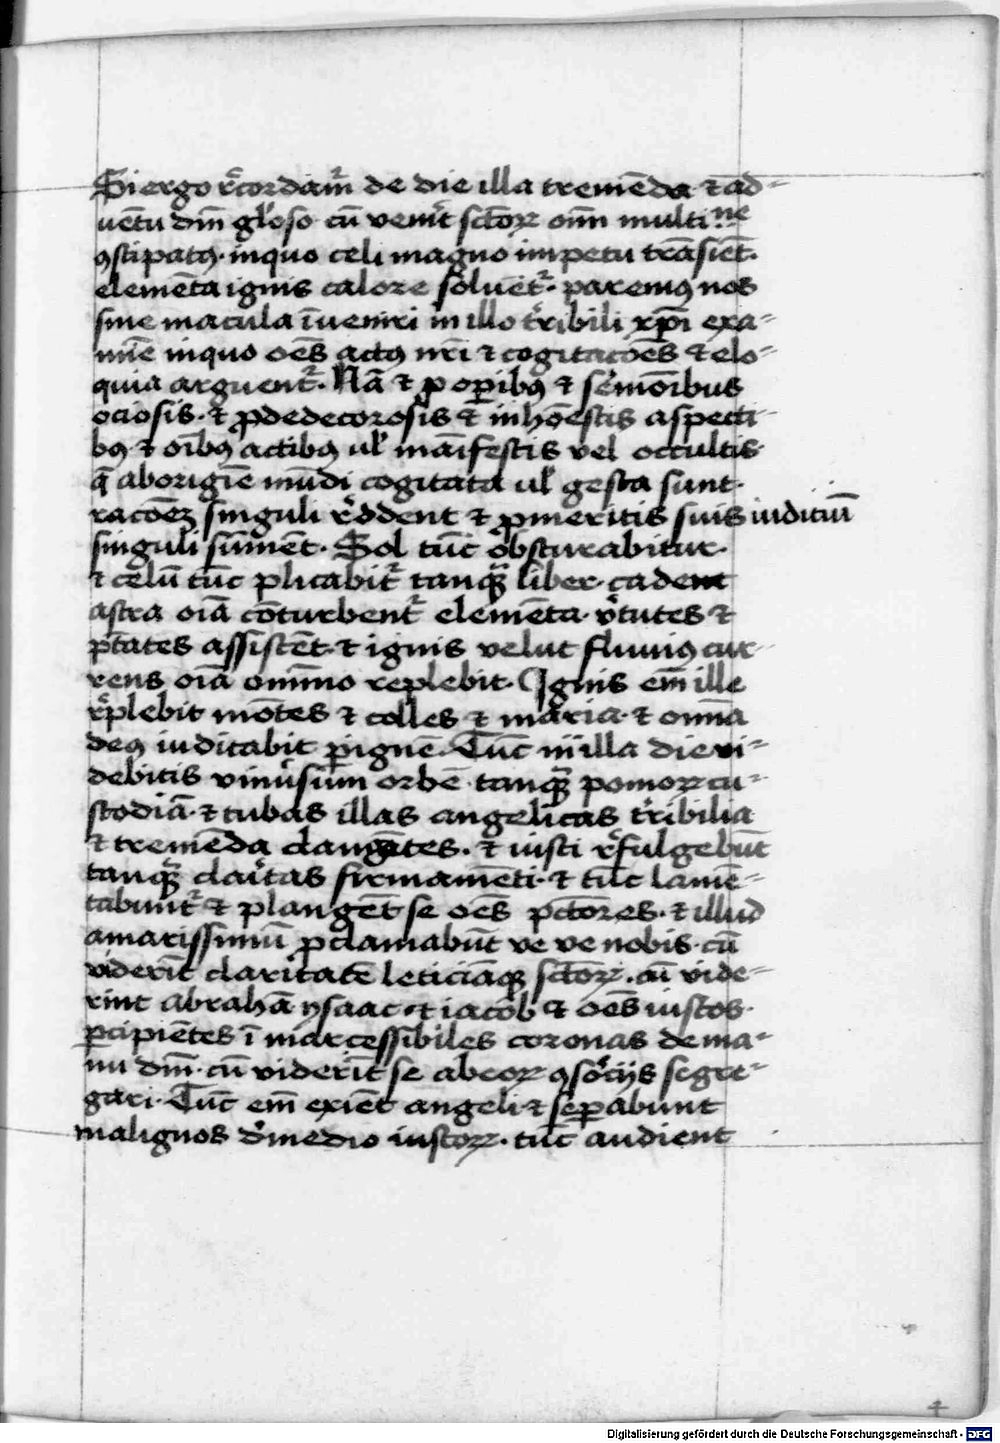 Si ergo r̃cordam̃ de die illa tremēda ⁊ ad⸗
uētu dm̃ gl̃oso cū venit̃ sctorꝝ om̃ multi⸗ne
ꝯstipatꝰ· inquo celi magno impetu trāsiēt·
elemēta ignis calore soluēt̃· paremꝰ nos
sine macula īueniri in illo tr̃ibili xp̃i exa⸗
mīe inquo oēs actꝰ nr̃i ⁊ cogitacōes ⁊ elo⸗
quia arguent̃· Nā ⁊ ꝓ oꝑibꝰ ⁊ sẽmōibus
ociosis· ⁊ ꝓdedecorosis ⁊ inhōestis aspecti⸗
bꝰ ⁊ oībꝰ actibꝰ ul̃ māifestis vel occultis
q̃ aborigīe mūdi cogitata ul̃ gesta sunt·
racōeꝫ singuli r̃ddent ⁊ ꝓmeritis suis iudiciū
singuli sūmēt· Sol tūc obscurabitur·
⁊ celū tūc plicabit̃ tanqꝫ̃ liber· cadent
astra oīa cōturbent̃ elemēta· ṽtutes ⁊
ptātes assistēt· ⁊ ignis velut fluuiꝰ cur⸗
rens oīa om̄ino replebit· Ignis em̃ ille
r̃plebit mōtes ⁊ colles ⁊ maria· ⁊ omīa
deꝰ iudicabit ꝑignē· Tūc in illa die vi⸗
debitis vniũsum orbē tanqꝫ̃ pomorꝝ cu⸗
stodiā· ⁊ tubas illas angelicas tr̃ibilia
⁊ tremēda clangātes· ⁊ iusti r̃fulgebūt
tanqꝫ̃ clar̃itas firmamēti· ⁊ tūc lamē⸗
tabunt̃ ⁊ plangēt se oēs pctōres· ⁊ illud
amarissimū ꝓclamabūt ve ve nobis· cū
viderīt claritatē leticiāqꝫ sctorꝝ· cū vide⸗
rint abrahā ysaac· ⁊ iacob ⁊ oēs iustos·
ꝑcipiētes ī marcessibiles coronas de ma⸗
nu dm̃· cū viderīt se ab eorꝝ ꝯsorciis segre⸗
gari· Tūc em̃ exiēt angeli ⁊ seꝑabunt
malignos d̃medio iustorꝝ· tūc audient
4
Digitalisierung gefördert durch die Deutsche Forschungsgemeinschaft - DFG